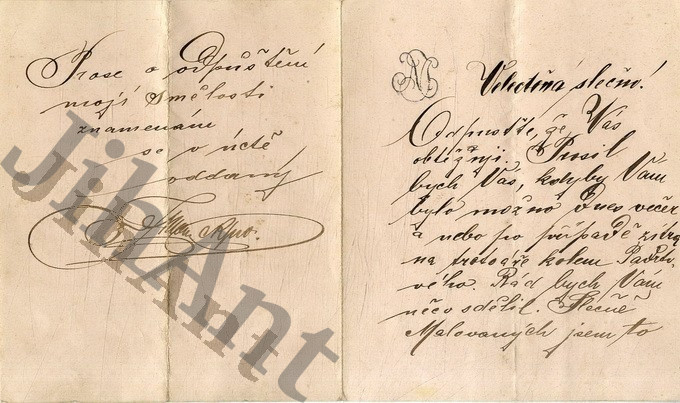 Prose o odpuštění
mojí smělosti
znamenám
se v úctě
oddaný
Velectěná slečno!
Odpusťte, že Vás
obtěžuji. Prosil
bych Vás, kdyby Vám
bylo možno dnes večer
a nebo po případě zítra
na trotoáře kolem
vého. Rád bych Vám
něco sdělil. Slečně
Malovaných jsem to
JihAnt